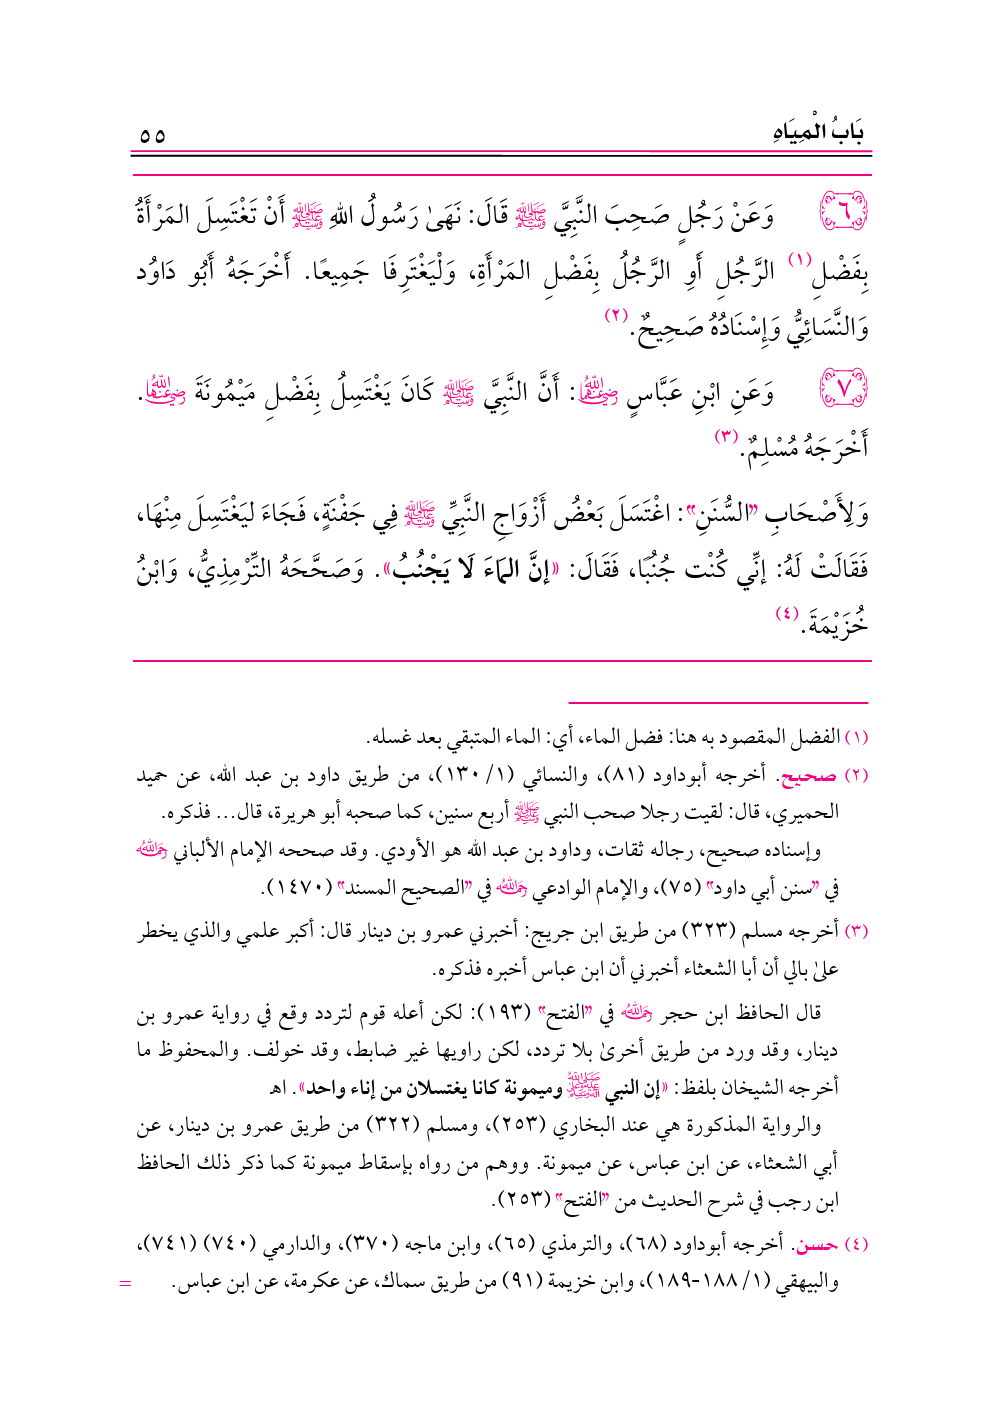 بَابُ الْمِيَاهِ
٥٥
٦ وَعَنْ رَجُلٍ صَحِبَ النَّبِيَّ ﷺ قَالَ: نَهَىٰ رَسُولُ اللهِ ﷺ أَنْ تَغْتَسِلَ المَرْأَةُ
بِفَضْلِ(١) الرَّجُلِ أَوِ الرَّجُلُ بِفَضْلِ المَرْأَةِ، وَلْيَغْتَرِفَا جَمِيعًا. أَخْرَجَهُ أَبُو دَاوُد
وَالنَّسَائِيُّ وَإِسْنَادُهُ صَحِيحٌ.(٢)
٧ وَعَنِ ابْنِ عَبَّاسٍ رضي الله عنهما: أَنَّ النَّبِيَّ ﷺ كَانَ يَغْتَسِلُ بِفَضْلِ مَيْمُونَةَ رضي الله عنها.
أَخْرَجَهُ مُسْلِمٌ.(٣)
وَلِأَصْحَابِ "السُّنَنِ": اغْتَسَلَ بَعْضُ أَزْوَاجِ النَّبِيِّ ﷺ فِي جَفْنَةٍ، فَجَاءَ ليَغْتَسِلَ مِنْهَا،
فَقَالَتْ لَهُ: إنِّي كُنْت جُنُبًا، فَقَالَ: «إنَّ المَاءَ لَا يَجْنُبُ». وَصَحَّحَهُ التِّرْمِذِيُّ، وَابْنُ
خُزَيْمَةَ.(٤)
(١) الفضل المقصود به هنا: فضل الماء، أي: الماء المتبقي بعد غسله.
(٢) صحيح. أخرجه أبوداود (٨١)، والنسائي (١/ ١٣٠)، من طريق داود بن عبد الله، عن حميد
الحميري، قال: لقيت رجلا صحب النبي ﷺ أربع سنين، كما صحبه أبو هريرة، قال... فذكره.
وإسناده صحيح، رجاله ثقات، وداود بن عبد الله هو الأودي. وقد صححه الإمام الألباني رحمه الله
في "سنن أبي داود" (٧٥)، والإمام الوادعي رحمه الله في "الصحيح المسند" (١٤٧٠).
(٣) أخرجه مسلم (٣٢٣) من طريق ابن جريج: أخبرني عمرو بن دينار قال: أكبر علمي والذي يخطر
علىٰ بالي أن أبا الشعثاء أخبرني أن ابن عباس أخبره فذكره.
قال الحافظ ابن حجر رحمه الله في "الفتح" (١٩٣): لكن أعله قوم لتردد وقع في رواية عمرو بن
دينار، وقد ورد من طريق أخرىٰ بلا تردد، لكن راويها غير ضابط، وقد خولف. والمحفوظ ما
أخرجه الشيخان بلفظ: «إن النبي ﷺ وميمونة كانا يغتسلان من إناء واحد». اهـ
والرواية المذكورة هي عند البخاري (٢٥٣)، ومسلم (٣٢٢) من طريق عمرو بن دينار، عن
أبي الشعثاء، عن ابن عباس، عن ميمونة. ووهم من رواه بإسقاط ميمونة كما ذكر ذلك الحافظ
ابن رجب في شرح الحديث من "الفتح" (٢٥٣).
(٤) حسن. أخرجه أبوداود (٦٨)، والترمذي (٦٥)، وابن ماجه (٣٧٠)، والدارمي (٧٤٠) (٧٤١)،
والبيهقي (١/ ١٨٨-١٨٩)، وابن خزيمة (٩١) من طريق سماك، عن عكرمة، عن ابن عباس. =